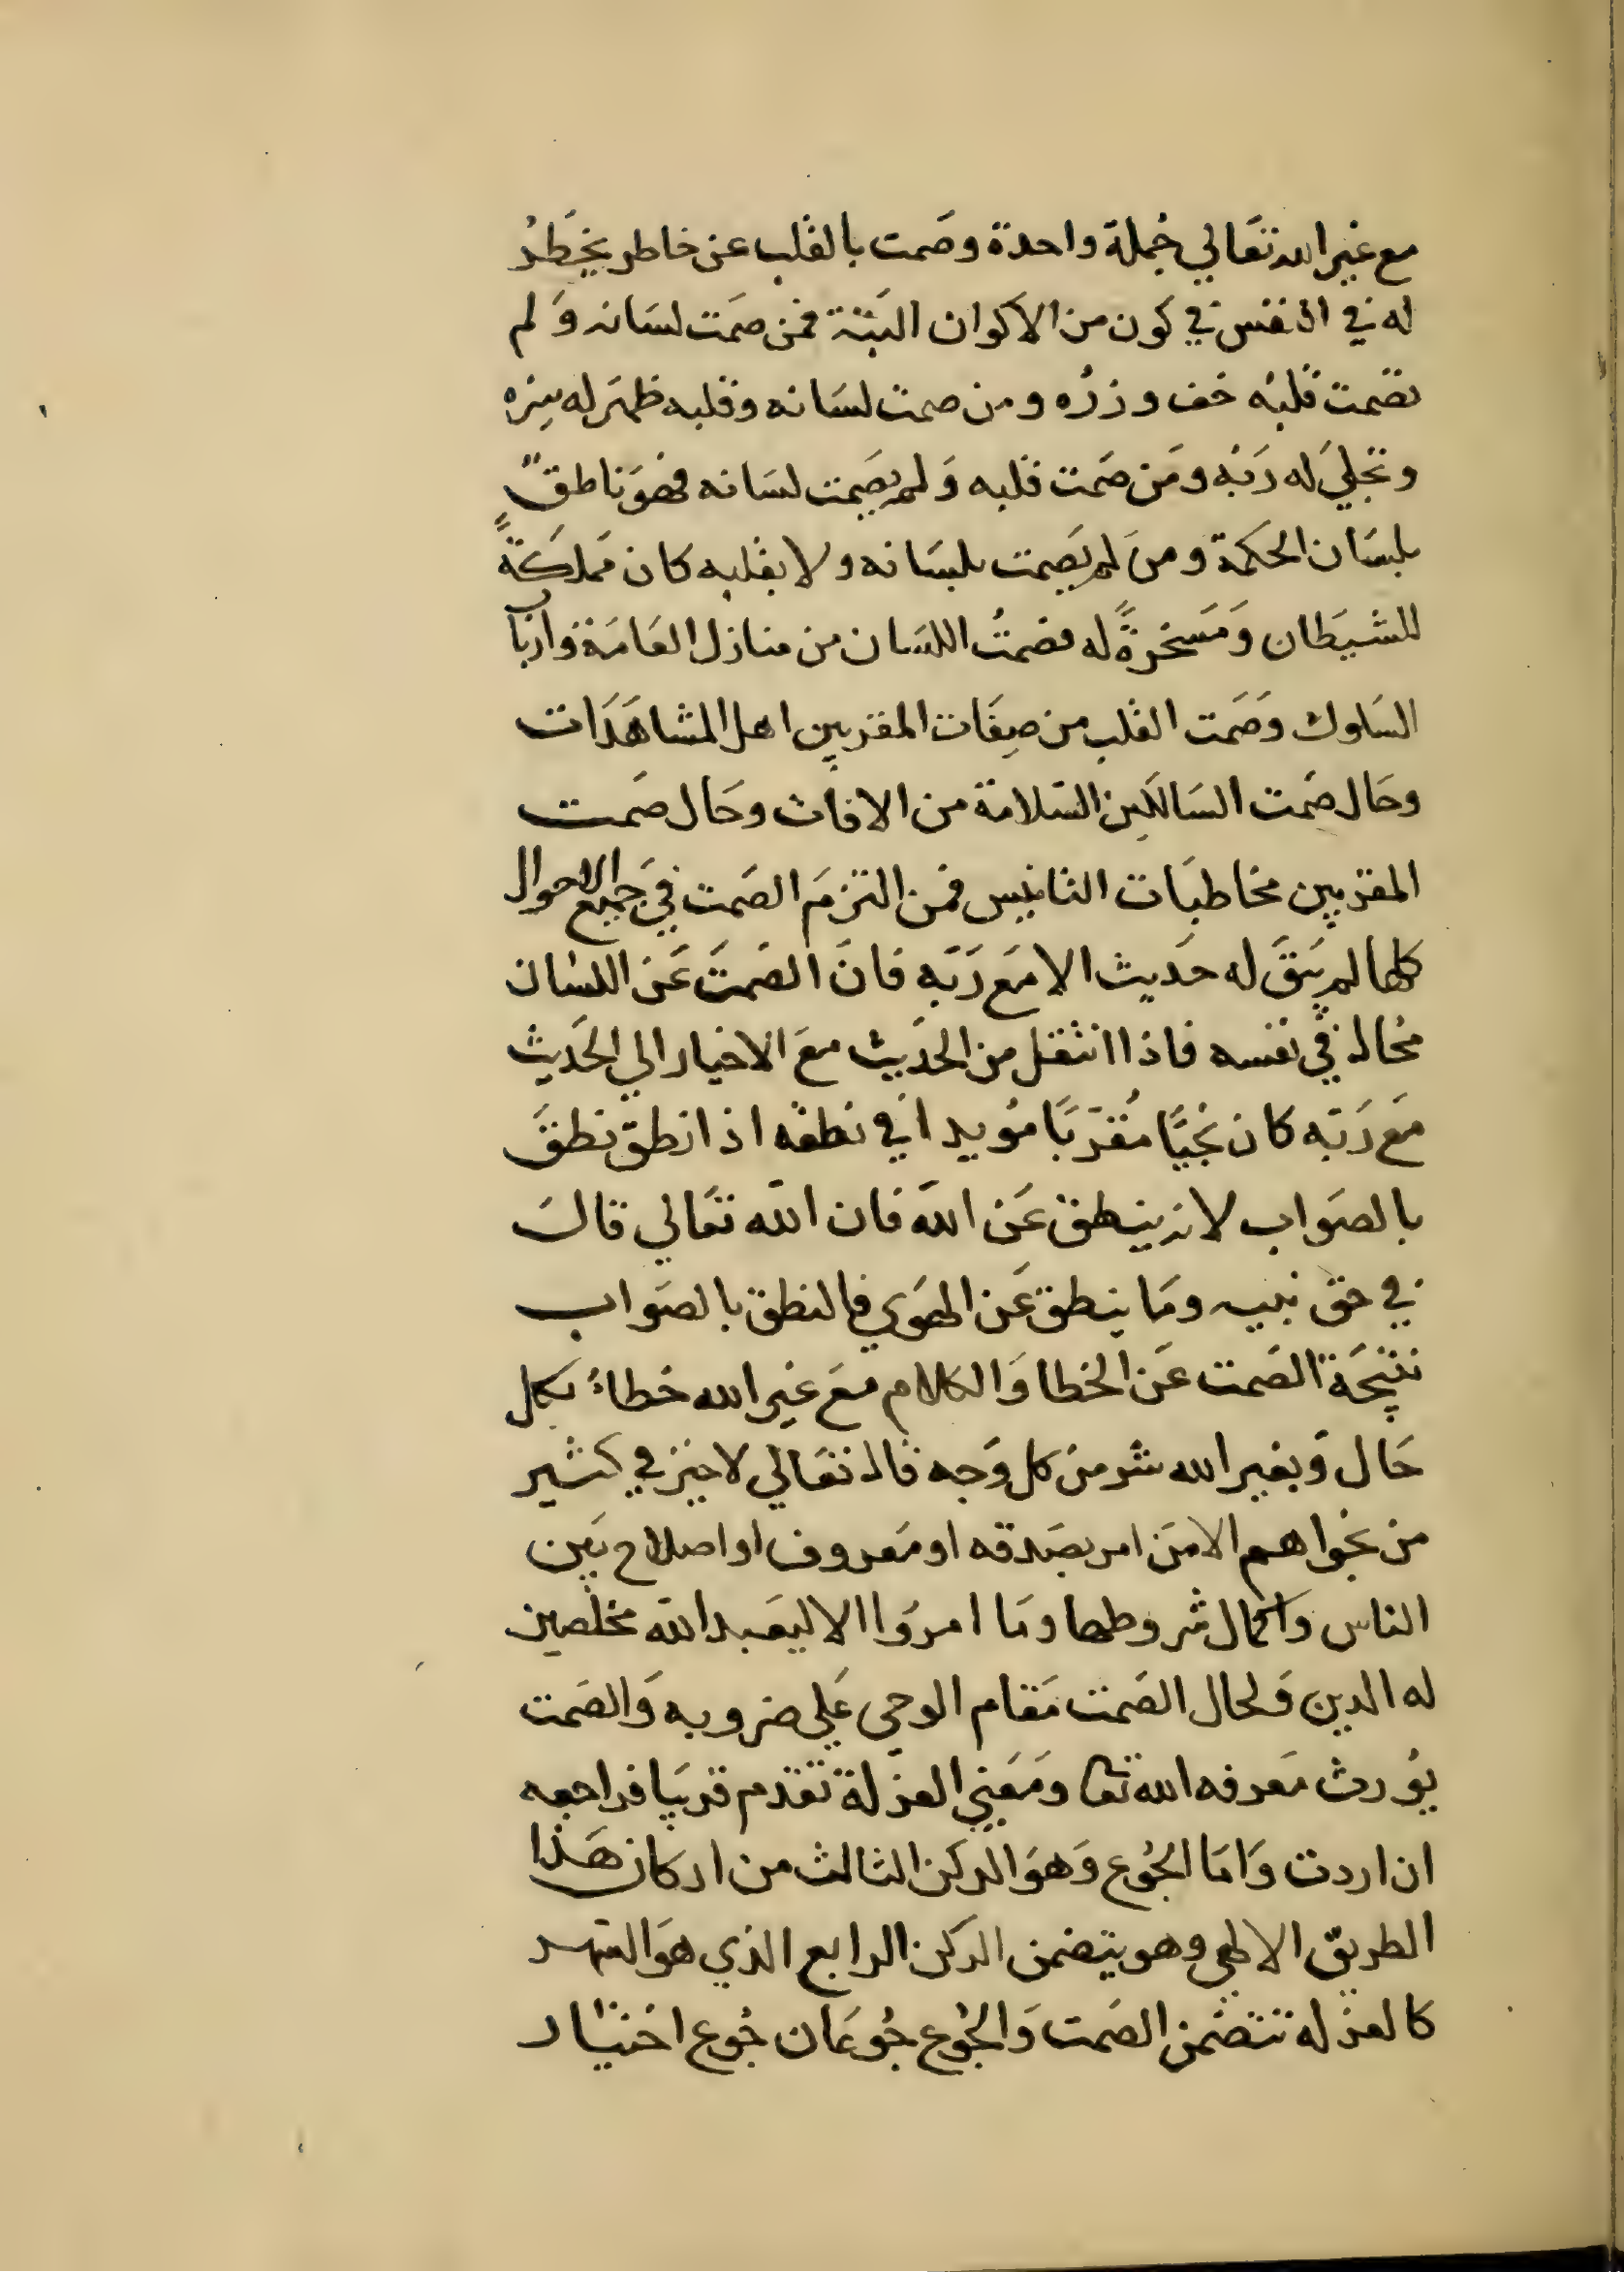 مع غير الله تعَالي جُملة واحدة وصَمت بالقلب عن خاطر يخطُر
له في النفس في كون من الاكوان البَتة فمن صمَت لسَانه وَلم
يصَمت قلبُه خف وزرُه ومن صمت لسَانه وقلبه ظهَر له سِرّه
وتجليَ له رَبّه ومَن صَمت قلبه وَلم يصَمت لسَانه فهوَ ناطقٌ
بلسَان الحكمة ومن لم يَصمت بلسَانه ولا بقلبه كان مَملكةً
للشيطَان وَمَسخرةً له فصَمتُ اللسَان من منازل العَامَة وارباب
السَلوك وصَمت القلب من صِفَات المقربين اهل المشاهَدَات
وحَال صَمت السَالكين السَلامة من الافات وحَال صَمت
المقربين مخاطبَات التانيس فمن التزمَ الصَمت في جَميع الاحوال
كلها لم يَبقَ له حَديث الا مَع رَبّه فانَ الصَمتَ عَن اللسان
مُحال في نفسه فاذا انتقل من الحَديث معَ الاخيار الي الحَديث
مَع رَبّه كان نَجيًا مُقرّبًا مؤيدا في نطقه اذا نطق نطقَ
بالصَواب لانه ينطق عَن الله فان الله تعَالي قالَ
في حق نبيه ومَا ينطق عَن الهَوي فالنطق بالصَواب
نتيجَة الصَمت عَن الخطا وَالكلام معَ غير الله خطاءٌ بكل
حَال وَبغير الله شر من كل وَجه قال تعَالي لا خير في كثير
من نجواهم الا مَن امر بصَدقه او مَعروف او اصلاح بَين
الناس واكمال شروطها ومَا امرَوا الا ليعَبدالله مخلصين
له الدين وَلحال الصَمت مَقام الوحي عَلي ضروبه وَالصَمت
يوُرث مَعرفه الله تعا ومَعَني العزلة تقدم قريبًا فراجعه
ان اردت وَامَا الجُوع وَهوَ الركن الثالث من اركان هَذا
الطريق الالهي وهو يتضمن الركن الرابع الذي هوَ السَهر
كالعزله تتضمن الصَمت وَالجُوع جُوعَان جُوع اختيار